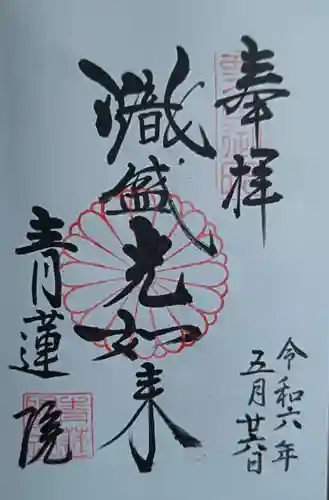 奉拝
熾盛光如来
青蓮院
令和六年
五月廿六日